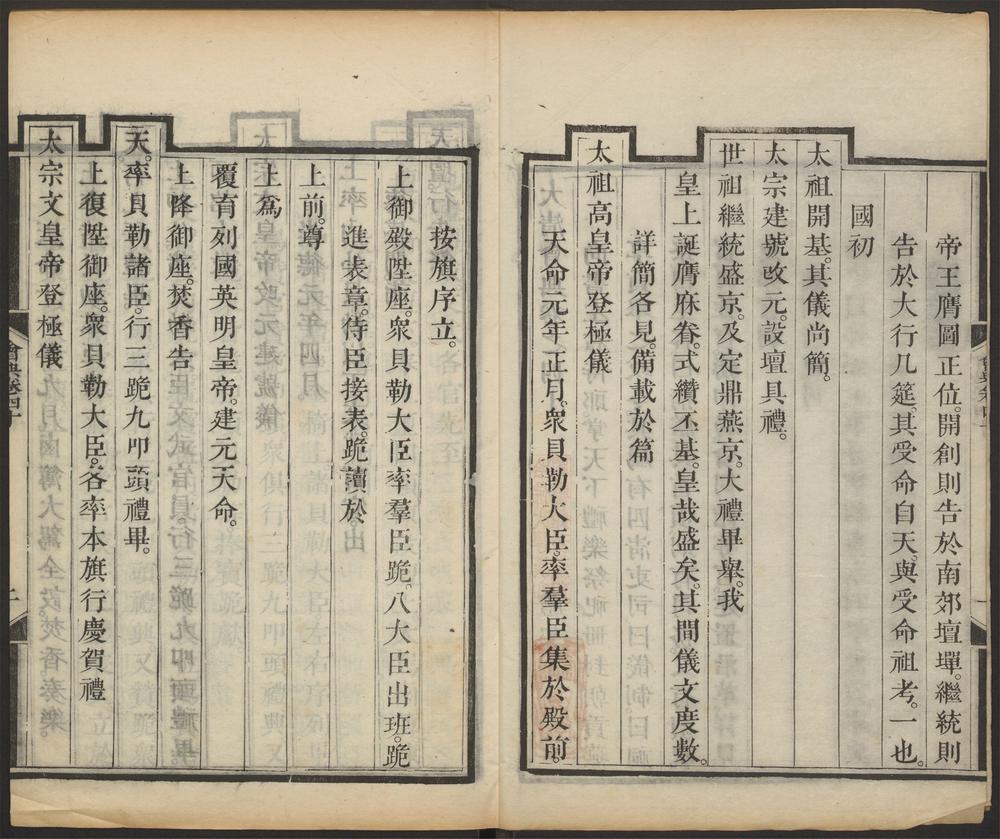 帝王膺圖正位。開創則告於南郊壇墠。繼統則
告於大行几筵。其受命自天。與受命祖考。一也。
國初
太祖開基。其儀尚簡。
太宗建號改元。設壇具禮。
世祖繼統盛京。及定鼎燕京。大禮畢舉。我
皇上誕膺庥眷。式纘丕基。皇哉盛矣。其間儀文度數。
詳簡各見。備載於篇
太祖高皇帝登極儀
天命元年正月。衆貝勒大臣。率羣臣集於殿前。
按旗序立。
上御殿陞座。衆貝勒大臣率羣臣跪。八大臣出班。跪
進表章。侍臣接表。跪讀於
上前。尊
上爲
覆育列國英明皇帝。建元天命。
上降御座。焚香告
天。率貝勒諸臣。行三跪九叩頭禮畢。
上復陞御座。衆貝勒大臣。各率本旗行慶賀禮
太宗文皇帝登極儀